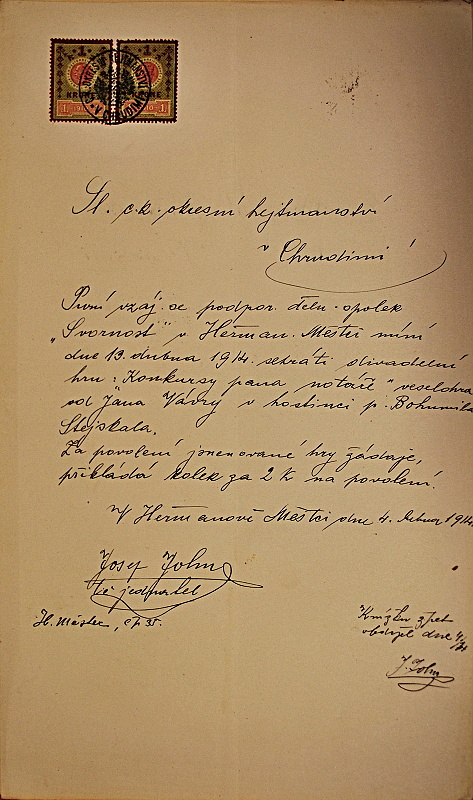 1 1
KRONE KRONE
1 1
V CHRUDIMI
Sl. c.k. okresní hejtmanství
v Chrudimi
První vzáj. se podpor. děln. spolek
„Svornost" v Heřman. Městci míní
dne 13. dubna 1914. sehráti divadelní
hru: „Konkursy pana notáře" veselohra
od Jana Vávry v hostinci p. Bohumila
Stejskala.
Za povolení jmenované hry žádaje,
přikládá kolek za 2 K na povolení.
V Heřmanově Městci dne 4. dubna 1914.
Josef John
jednatel
H. Městec, čp. 35.
Knížku zpet
obdržel dne
J. John